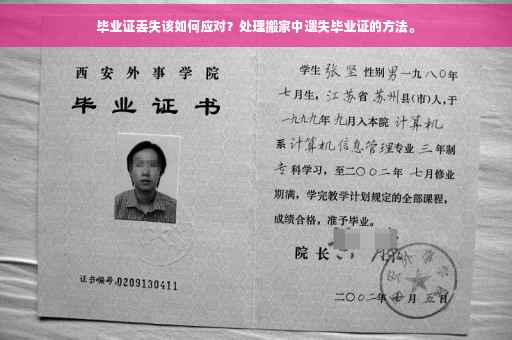 毕业证丢失该如何应对？处理搬家中遗失毕业证的方法。
西安外事学院
毕业证书
证书编号:0209130411
学生张坚性别男一九八〇年
七月生，江苏省苏州县(市)人,于
一九九九年九月入本院计算机
系计算机信息管理专业三年制
专科学习，至二〇〇二年七月修业
期满，学完教学计划规定的全部课程，
成绩合格，准予毕业。
院长
二〇〇二年 月五日